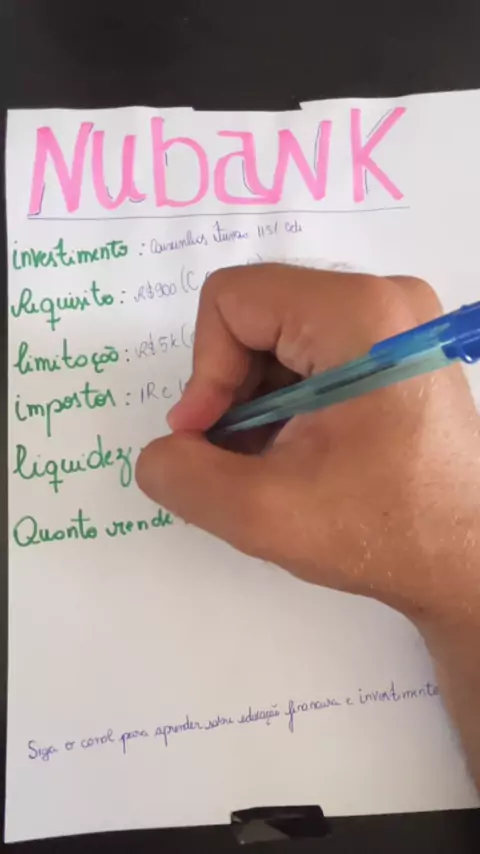 NUbaNK
investimento : Caixinhas turbo 115% cdi
Requisito : R$900 (C
limitação : R$5k(
impostos : IR e
liquidez
Quanto rende
Siga o canal para aprender sobre educação financeira e investimento